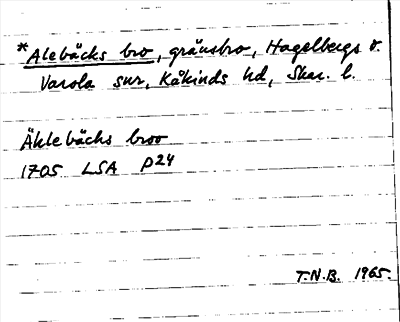 *Alebäcks bro, gränsbro, Hagelbergs o.
Varola snr, Kåkinds hd, Skar. l.
Äklebächs broo
1705 LSA P24
T.N.B. 1965.